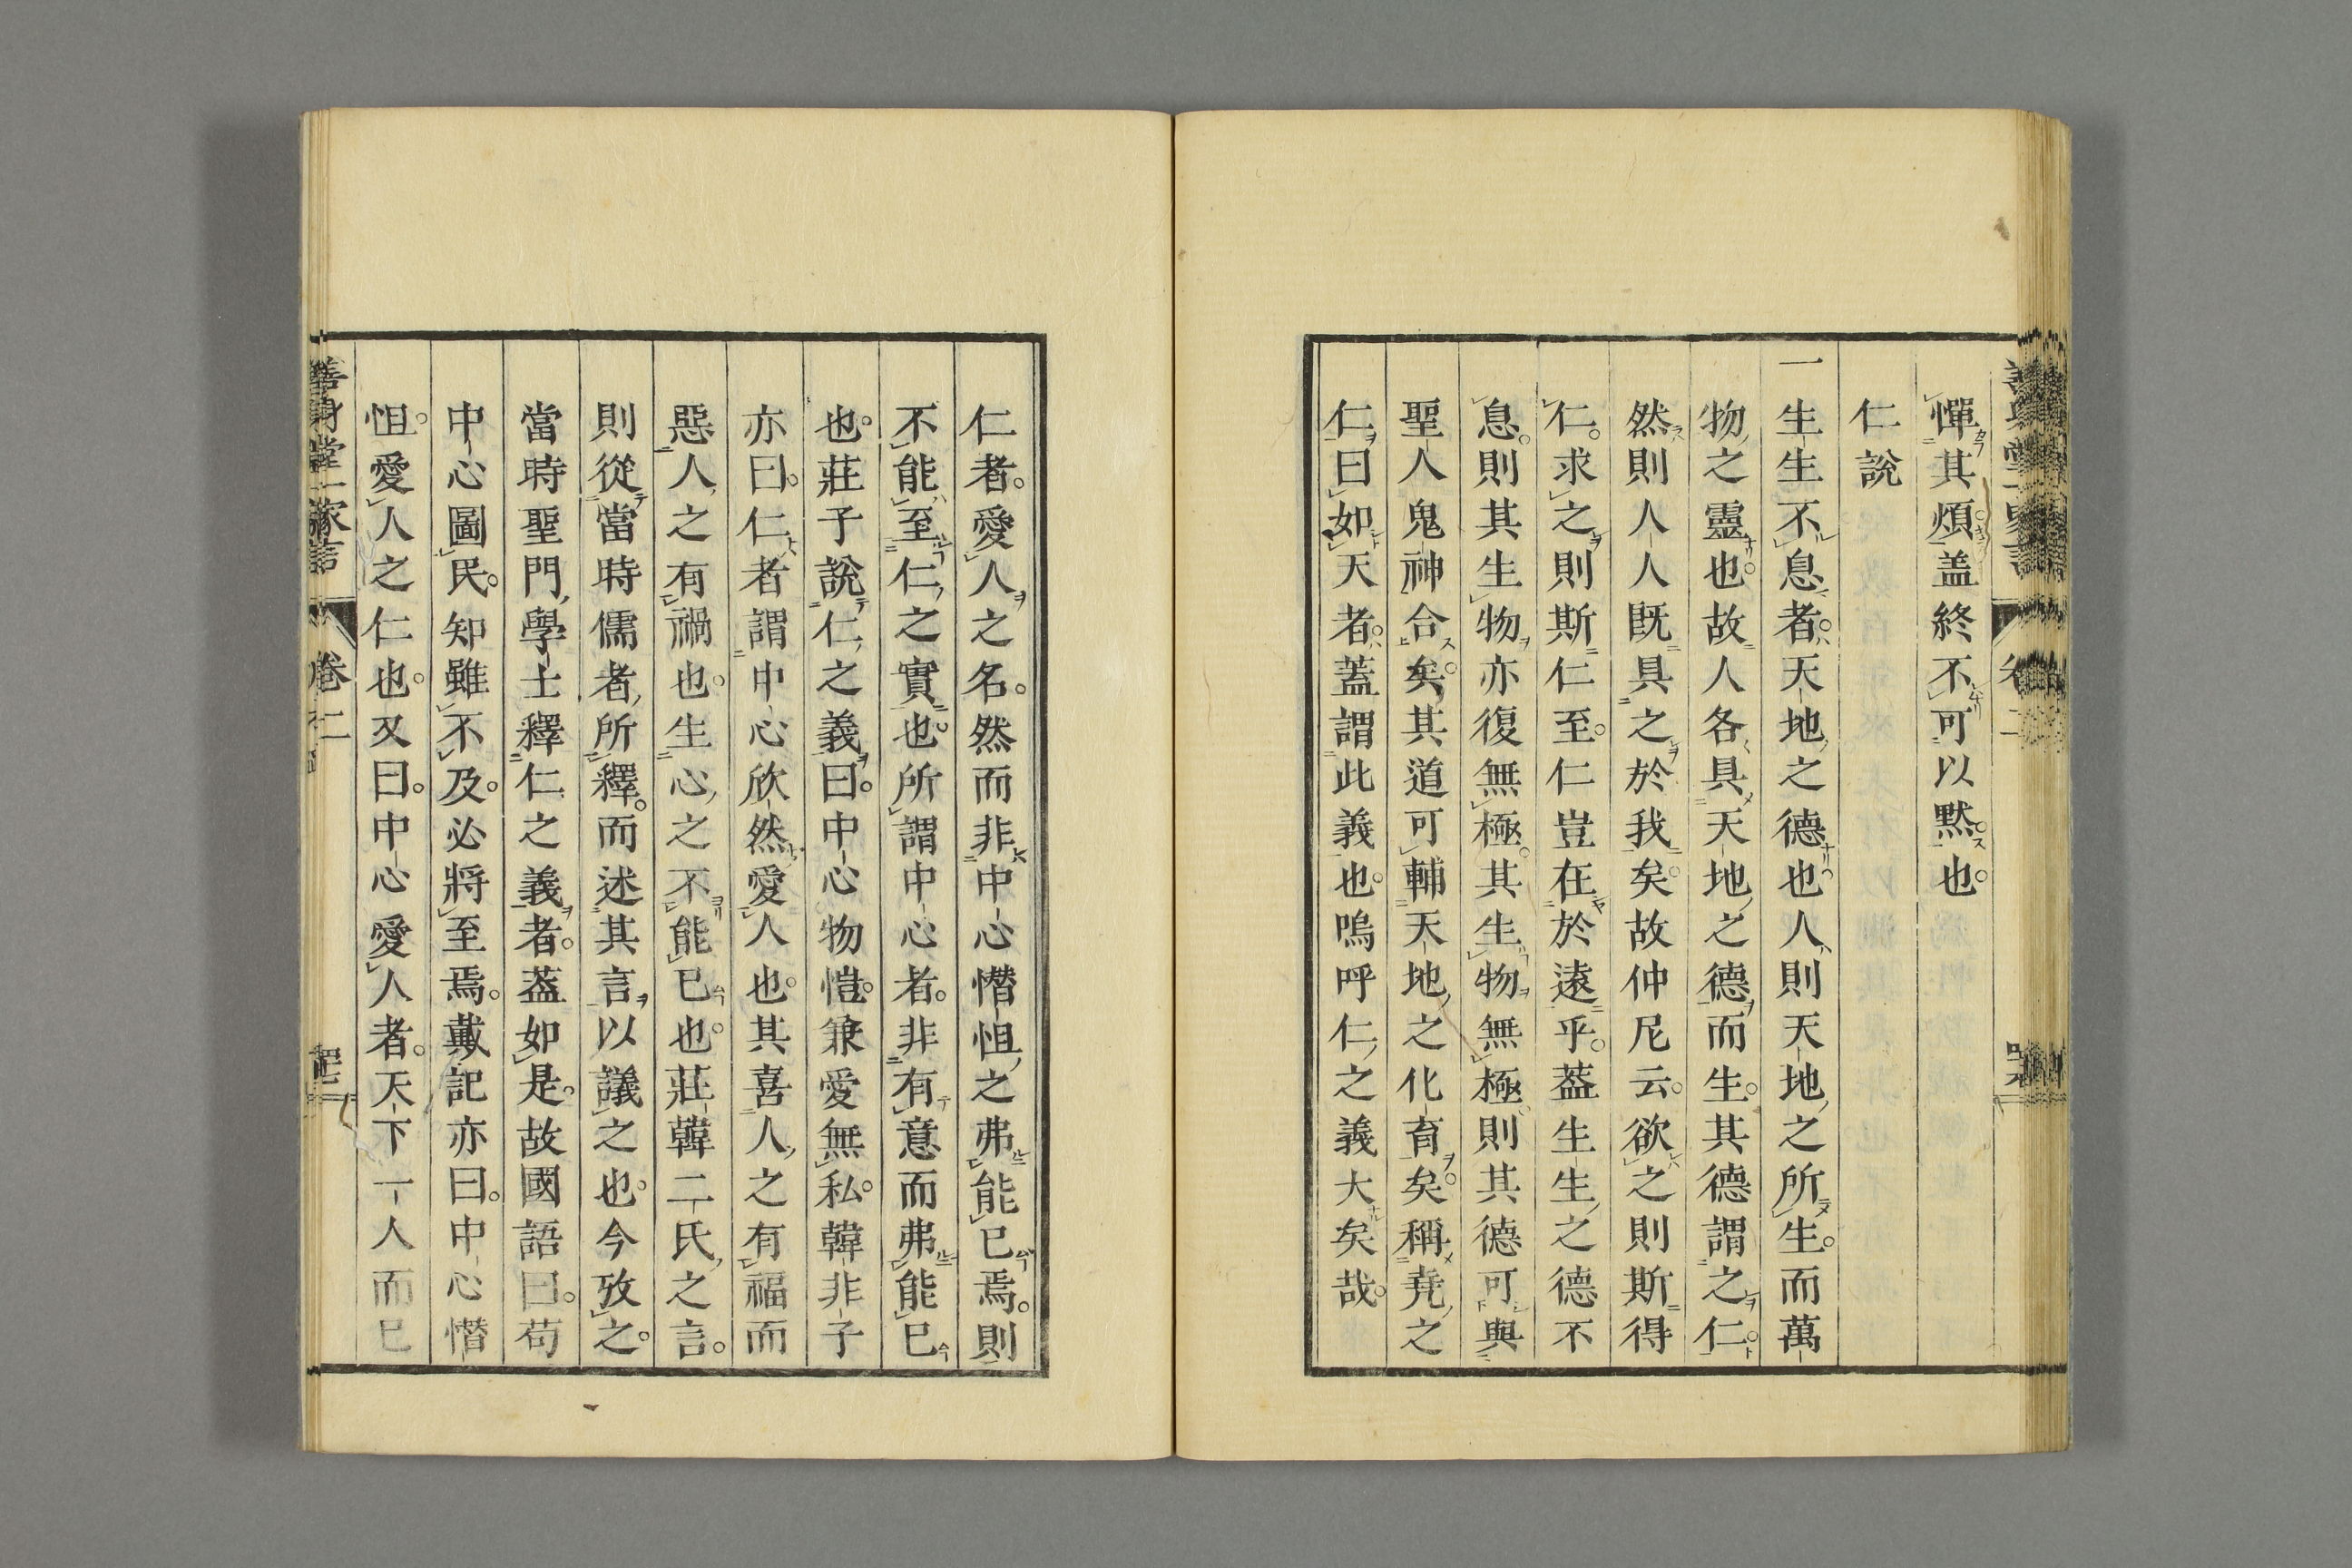 憚其煩盖終不可以黙也
仁說
一生生不息者天地之德也人則天地之所生而萬
物之靈也故人各具天地之德而生其德謂之仁
然則人人既具之於我矣故仲尼云欲之則斯得
仁求之則斯仁至仁豈在於遠乎葢生生之德不
息則其生物亦復無極其生物無極則其德可與
聖人鬼神合矣其道可輔天地之化育矣稱堯之
仁曰如天者蓋謂此義也嗚呼仁之義大矣哉
仁者愛人之名然而非中心憯怛之弗能已焉則
不能至仁之實也所謂中心者非有意而弗能已
也莊子說仁之義曰中心物愷兼愛無私韓非子
亦曰仁者謂中心欣然愛人也其喜人之有福而
惡人之有禍也生心之不能已也莊韓二氏之言
則從當時儒者所釋而述其言以議之也今攷之
當時聖門學士釋仁之義者葢如是故國語曰苟
中心圖民知雖不及必將至焉戴記亦曰中心憯
怛愛人之仁也又曰中心愛人者天下一人而已
善身堂一家言
卷二